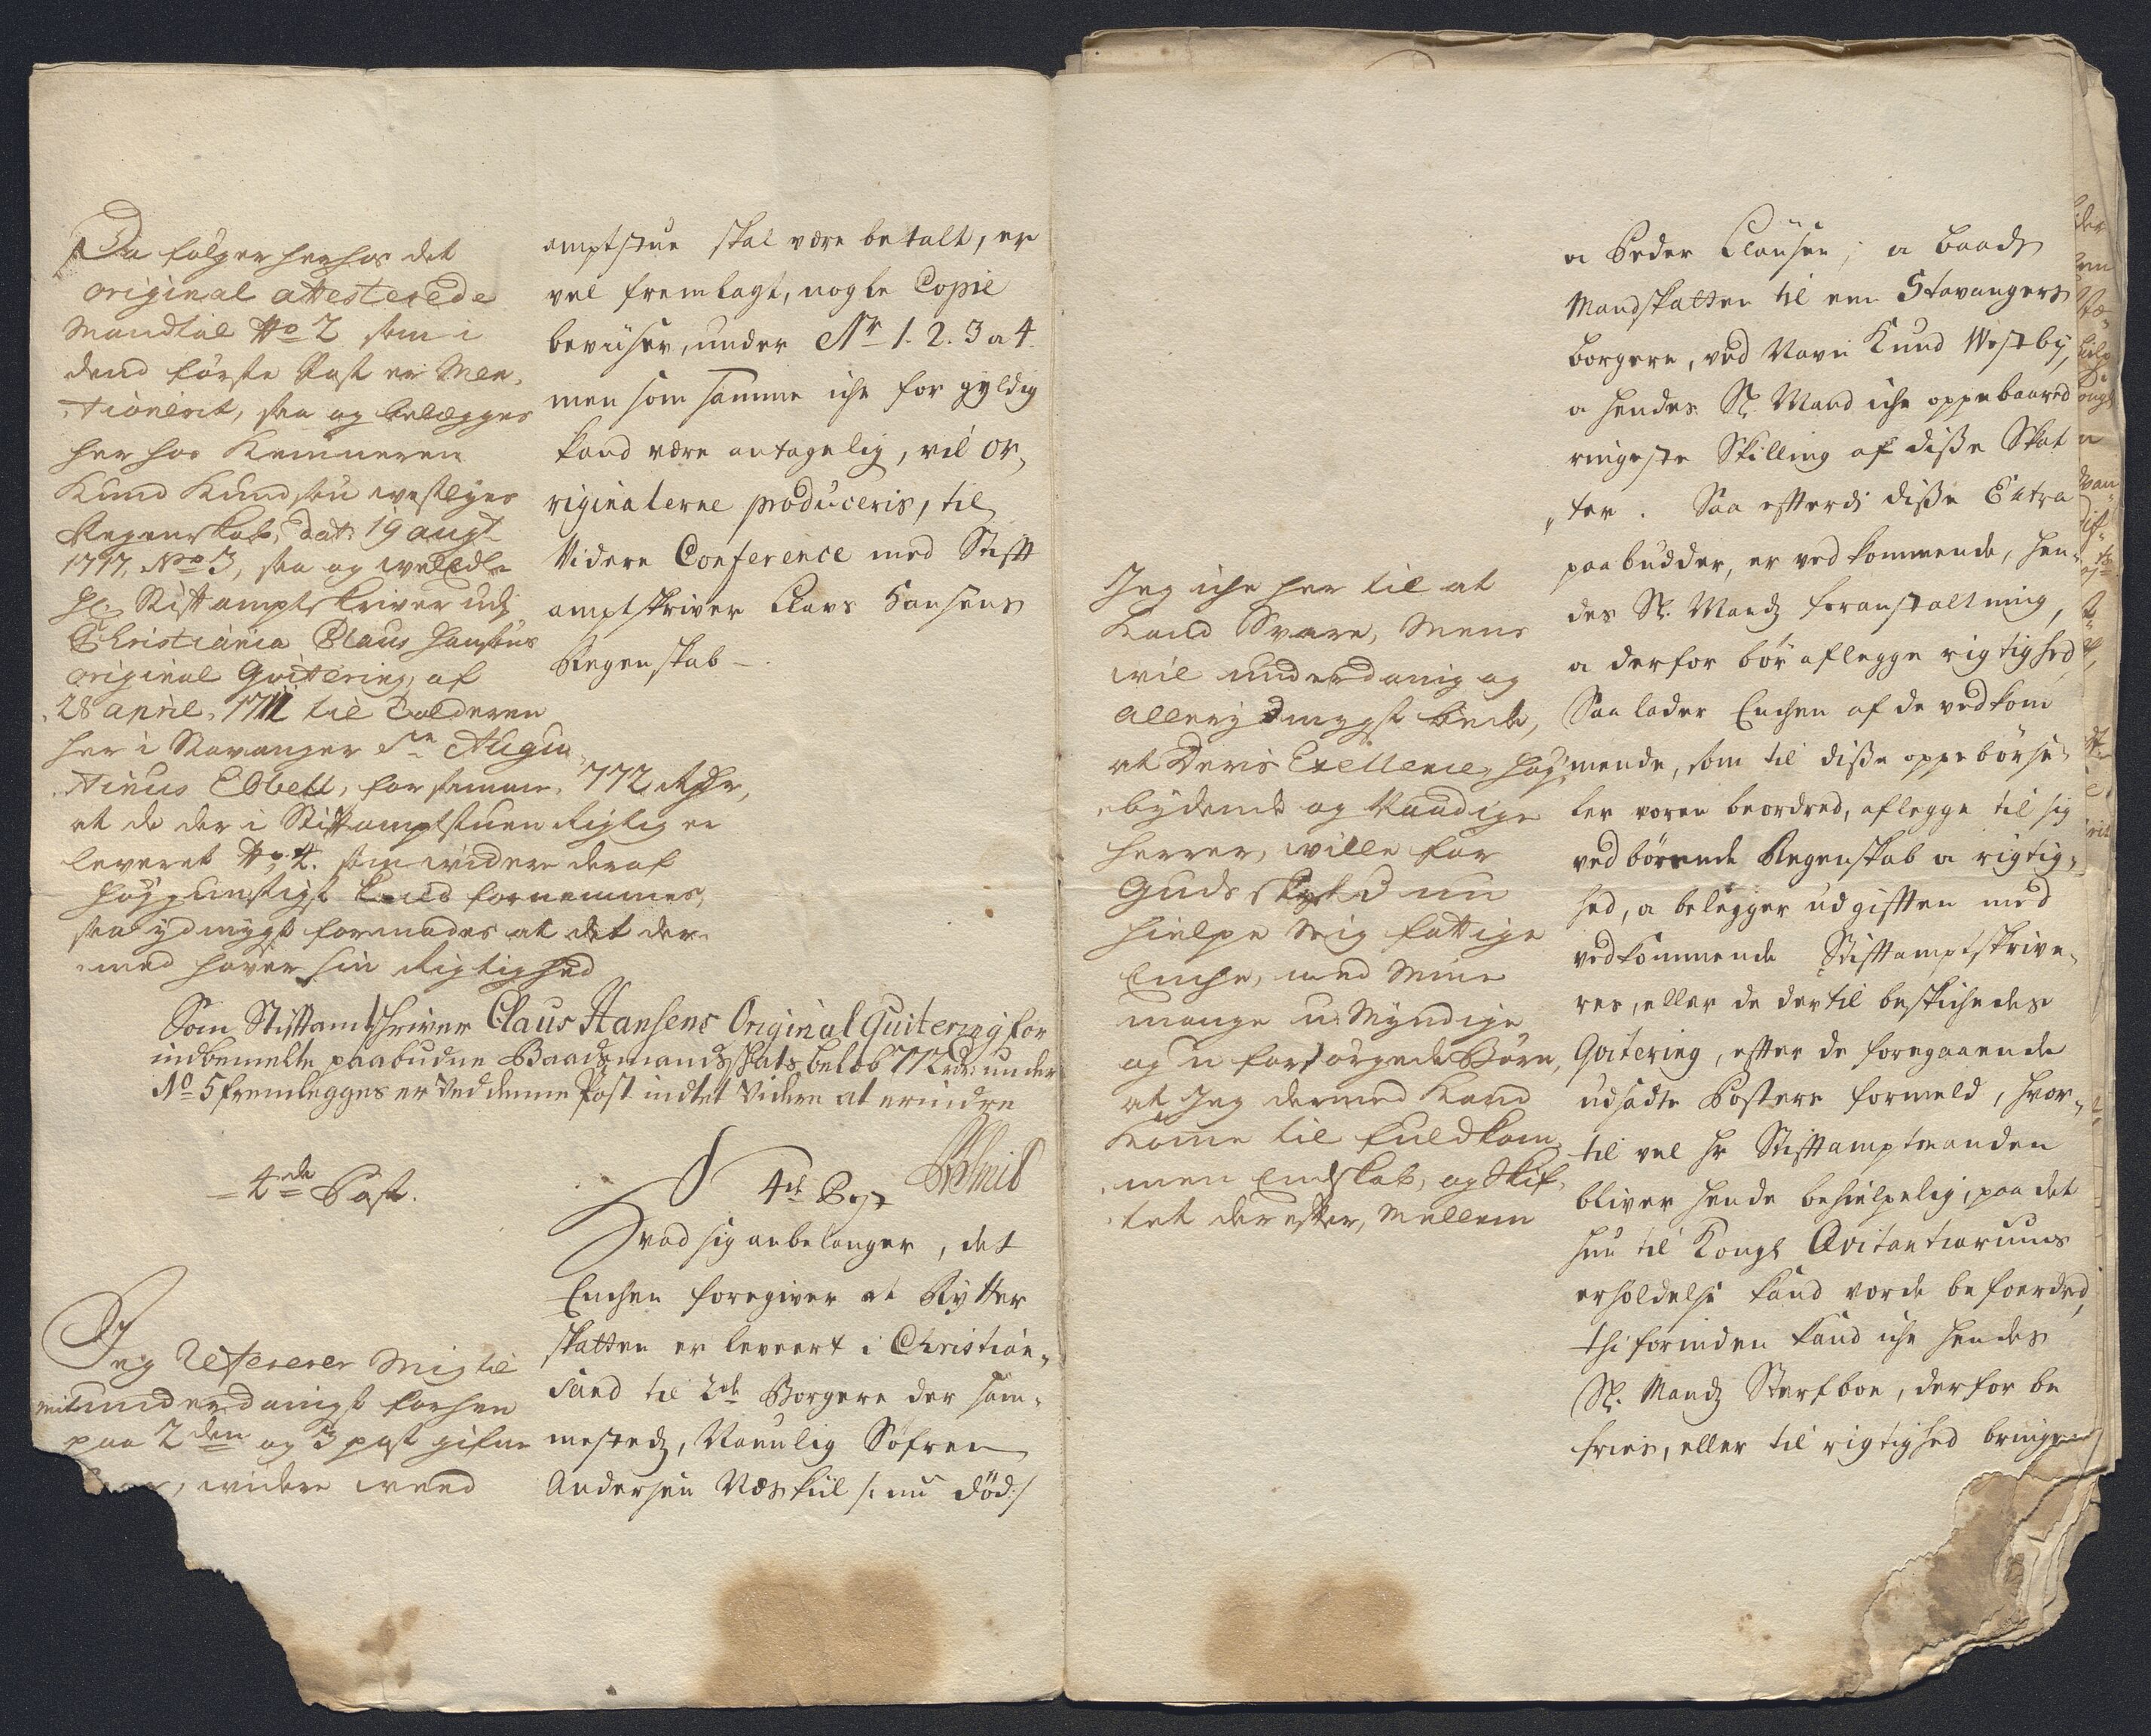 Da følger herhos det
original attesterede
Mandtal No 2 som i
dend første Post er Men,
tionerit, saa og belægges
her hos Kemneren
Knud Knudsøn westbyes
Regenskab, dat: 19 augt
1717, No 3, saa og welEdle
Hr. Stiftamptskriver udj
Christiania Claus Hansens
original Qvittering, af
28 april, 1711 til Tolderen
her i Stavanger Sr Augu
stinus Elbell, for samme, 772 Rdr,
at de der i Stiftamptstuen Rigtig er
leveret No 4. som widere deraf
høygunstigst kand fornemmes,
saa ydmygst formodes at det der
med haver sin Rigtighed
Som Stiftamtskriver Claus Hansens Original Quitering for
indbemelte paabudne Baadzmands skats beløb 772 rdr. under
No 5 fremlegges er Ved denne Post indtet Videre at erindre
4de Post.
Jeg Refererer Mig til
mit underdanigst forhen
paa 2den og 3 post gifne
widere wend
amptstue skal være betalt, er
vel fremlagt, nogle Copie
beviiser, under Nr 1. 2. 3 a 4.
men som samme iche for gyldig
kand være antagelig, vil Or,
riginalerne produceris, til
Videre Conference med Stift
amptskriver Claus Hansens
Regenskab
4de Post
Hvad sig anbelanger, det
Enchen foregiver at Rytter
skatten er leveert i Christian,
sand til 2de Borgere der sam,
mestedz, Navnlig Søfren
Andersen Næskiil /: nu død :/
Jeg iche her til at
kand Svare, Mens
wil underdanig og
allerydmygst bede,
at Deris Exellence, høy
bydende og Naadige
Herrer, wille for
Guds skyld nu
hielpe Mig fattige
Enche, med Mine
mange u-Myndige
og u forsørgede Børn,
at Jeg dermed kand
komme til fuldkom,
men Endskab, og Skif,
tet derefter, Mellem
a Peder Clausen; a baadz
Mandskatten til een Stavangers
borgere, ved Navn Knud Westby,
a hendes Sl. Mand iche oppebaared
ringeste Skilling af disse Skat
ter. Saa efterdi disse Extra
paabudder, er vedkommende, hen,
des Sl. Mandz foranstaltning,
a derfor bør aflegge rigtighed
Saa lader Enchen af de vedkom
mende, som til disse oppebørse
ler voren beordred, aflegge til sig
vedbørende Regenskab a rigtig,
hed, a belegger udgiften med
vedkommende Stiftamptskrive,
res, eller de dertil beskichedes
Qvitering, efter de foregaaende
udsadte Posters formeld, hvor,
til vel Hr Stiftamptmanden
bliver hende behielpelig, paa det
hun til Kongl Qvitantiarums
erholdelse kand vorde befoerdred,
thi forinden kand iche hendes
Sl. Mandz Sterfboe, derfor be
fries, eller til rigtighed bringes